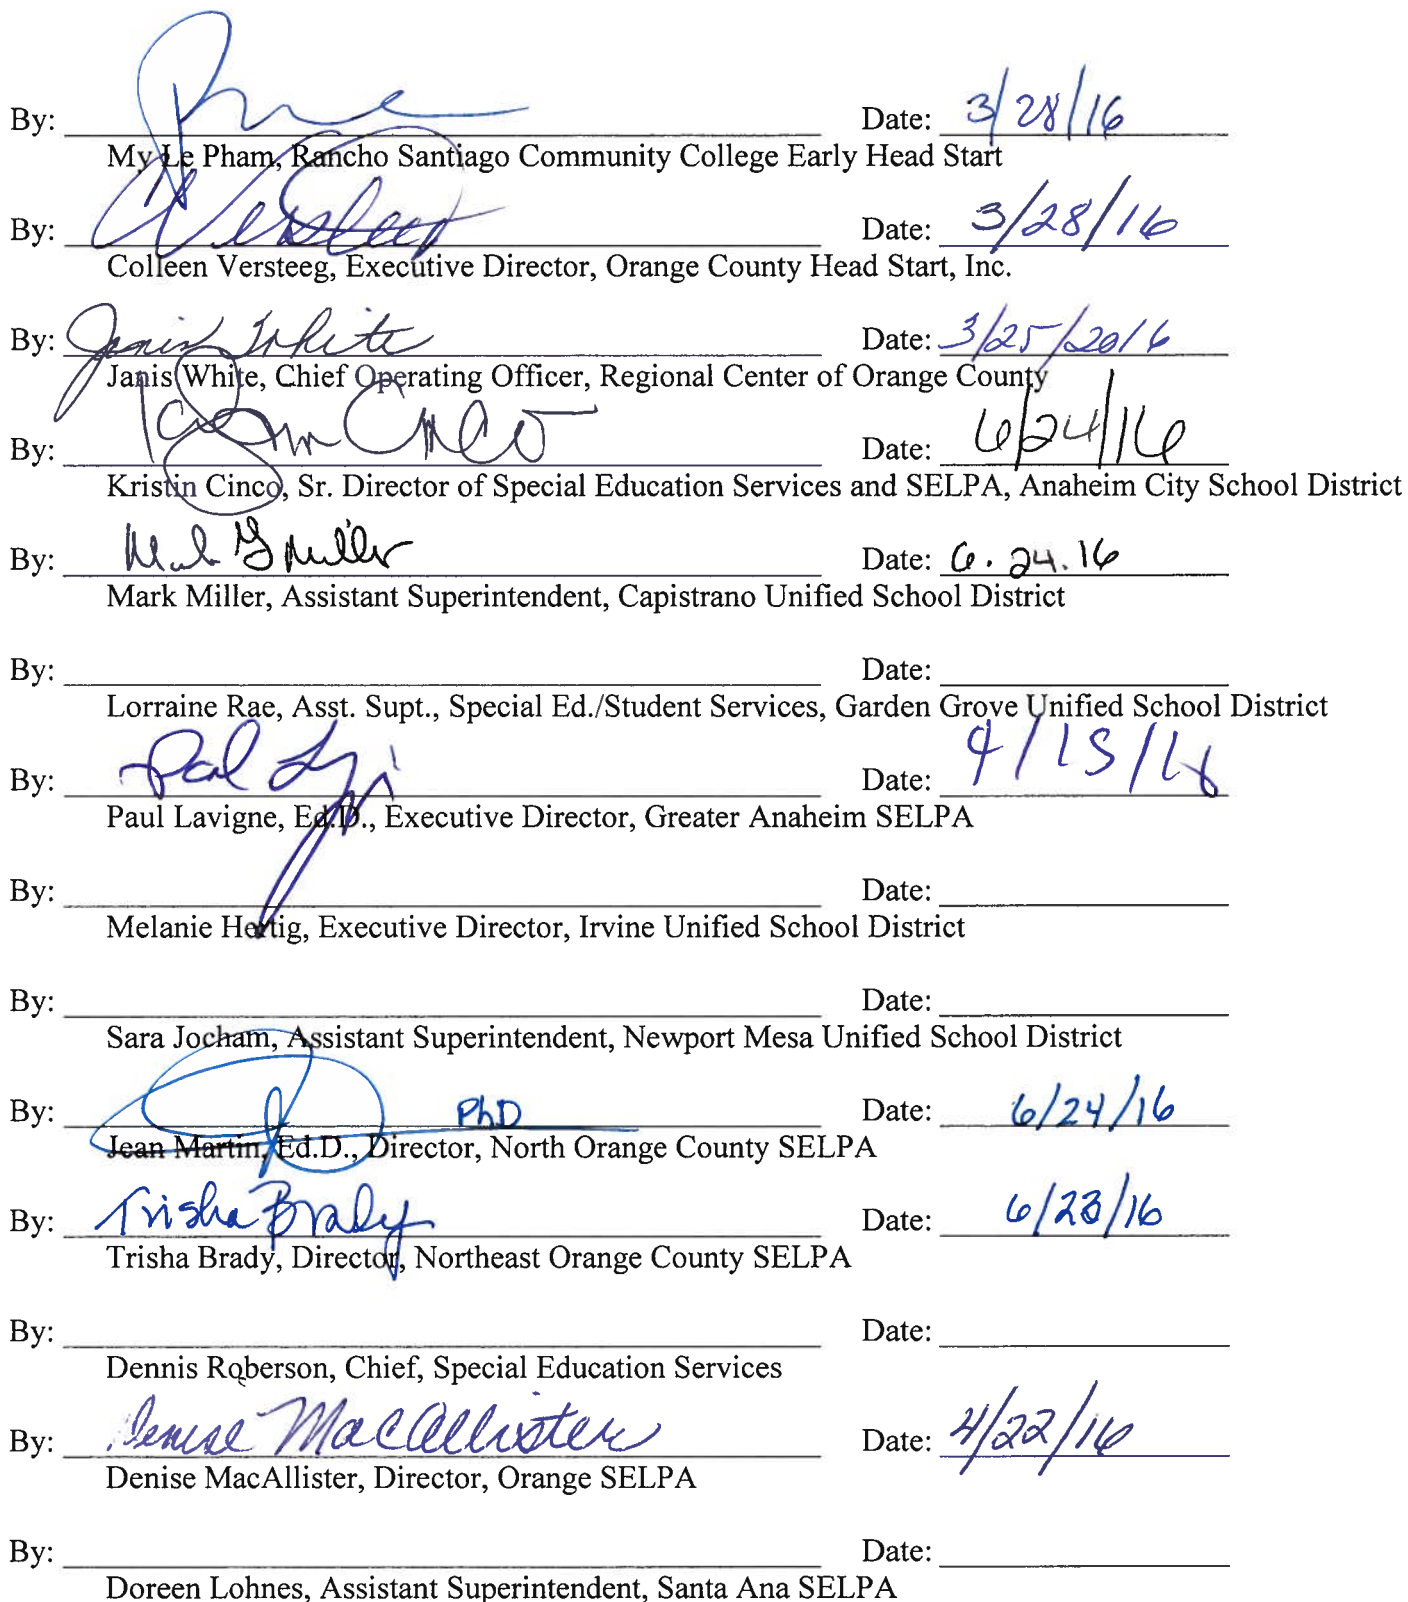 By: Date: 3/28/16
My Le Pham, Rancho Santiago Community College Early Head Start
By: CVersteeg Date: 3/28/16
Colleen Versteeg, Executive Director, Orange County Head Start, Inc.
By: Janis White Date: 3/25/2016
Janis White, Chief Operating Officer, Regional Center of Orange County
By: Cinco Date: 6/24/16
Kristin Cinco, Sr. Director of Special Education Services and SELPA, Anaheim City School District
By: Mark G Miller Date: 6.24.16
Mark Miller, Assistant Superintendent, Capistrano Unified School District
By: Date:
Lorraine Rae, Asst. Supt., Special Ed./Student Services, Garden Grove Unified School District
By: Paul Date: 4/15/16
Paul Lavigne, Ed.D., Executive Director, Greater Anaheim SELPA
By: Date:
Melanie Hertig, Executive Director, Irvine Unified School District
By: Date:
Sara Jocham, Assistant Superintendent, Newport Mesa Unified School District
By: PhD Date: 6/24/16
Jean Martin, Ed.D., Director, North Orange County SELPA
By: Trisha Brady Date: 6/23/16
Trisha Brady, Director, Northeast Orange County SELPA
By: Date:
Dennis Roberson, Chief, Special Education Services
By: Denise MacAllister Date: 4/22/16
Denise MacAllister, Director, Orange SELPA
By: Date:
Doreen Lohnes, Assistant Superintendent, Santa Ana SELPA